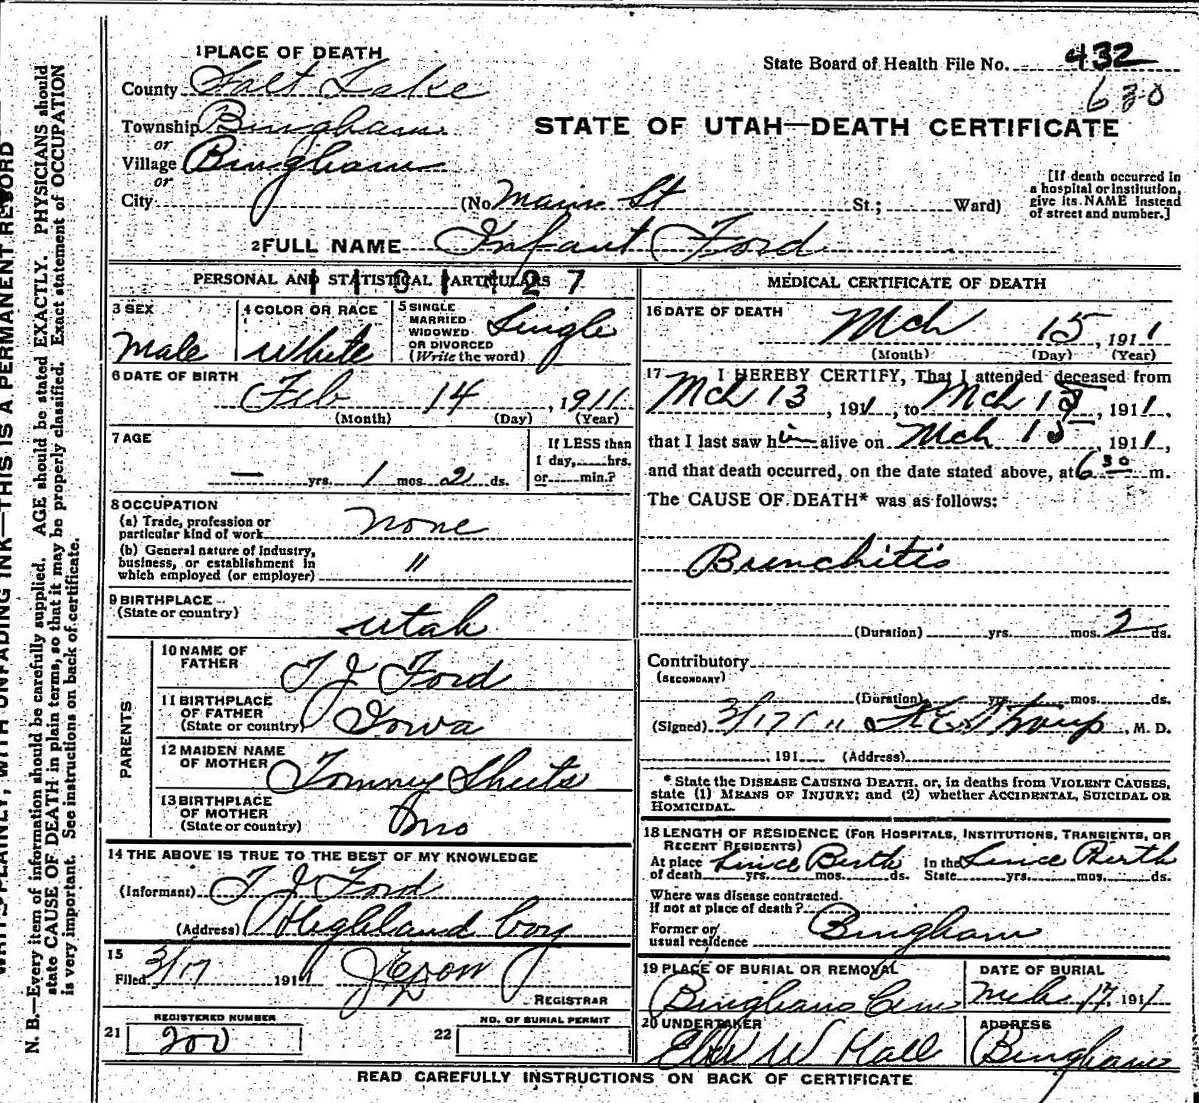 1 PLACE OF DEATH
State Board of Health File No. 432
County Salt Lake
630
Township Bingham
or
STATE OF UTAH—DEATH CERTIFICATE
Village Bingham
or
City (No. Main St St.; Ward)
[If death occurred in
a hospital or institution,
give its NAME instead
of street and number.]
2 FULL NAME Infant Ford
PERSONAL AND STATISTICAL PARTICULARS
3 SEX
Male
4 COLOR OR RACE
White
5 SINGLE
MARRIED
WIDOWED
OR DIVORCED
(Write the word)
Single
6 DATE OF BIRTH
Feb 14, 1911
(Month) (Day) (Year)
7 AGE
— yrs. 1 mos. 2 ds.
If LESS than
1 day, hrs.
or min.?
8 OCCUPATION
(a) Trade, profession or
particular kind of work none
(b) General nature of industry,
business, or establishment in
which employed (or employer) "
9 BIRTHPLACE
(State or country)
Utah
PARENTS
10 NAME OF
FATHER
T J Ford
11 BIRTHPLACE
OF FATHER
(State or country)
Iowa
12 MAIDEN NAME
OF MOTHER
Tommey Sheets
13 BIRTHPLACE
OF MOTHER
(State or country)
Mo
14 THE ABOVE IS TRUE TO THE BEST OF MY KNOWLEDGE
(Informant) T J Ford
(Address) Highland Boy
15
Filed 3/17 1911
REGISTRAR
21
REGISTERED NUMBER
200
22
NO. OF BURIAL PERMIT
MEDICAL CERTIFICATE OF DEATH
16 DATE OF DEATH
Mch 15, 1911
(Month) (Day) (Year)
17 I HEREBY CERTIFY, That I attended deceased from
Mch 13, 1911, to Mch 15, 1911,
that I last saw him alive on Mch 15, 1911,
and that death occurred, on the date stated above, at 6 30 m.
The CAUSE OF DEATH* was as follows:
Bronchitis
(Duration) yrs. mos. 2 ds.
Contributory
(SECONDARY)
(Duration) yrs. mos. ds.
(Signed) 3/17/11 Straup, M. D.
, 191 (Address)
* State the DISEASE CAUSING DEATH, or, in deaths from VIOLENT CAUSES,
state (1) MEANS OF INJURY; and (2) whether ACCIDENTAL, SUICIDAL OR
HOMICIDAL.
18 LENGTH OF RESIDENCE (FOR HOSPITALS, INSTITUTIONS, TRANSIENTS, OR
RECENT RESIDENTS)
At place
of death Since Birth yrs. mos. ds.
In the
State Since Birth yrs. mos. ds.
Where was disease contracted
If not at place of death?
Former or
usual residence Bingham
19 PLACE OF BURIAL OR REMOVAL
Bingham Cem
DATE OF BURIAL
Mch 17, 1911
20 UNDERTAKER
W Hall
ADDRESS
Bingham
READ CAREFULLY INSTRUCTIONS ON BACK OF CERTIFICATE
WITH UNFADING INK—THIS IS A PERMANENT RECORD
N. B.—Every item of information should be carefully supplied. AGE should be stated EXACTLY. PHYSICIANS should
state CAUSE OF DEATH in plain terms, so that it may be properly classified. Exact statement of OCCUPATION
is very important. See instructions on back of certificate.